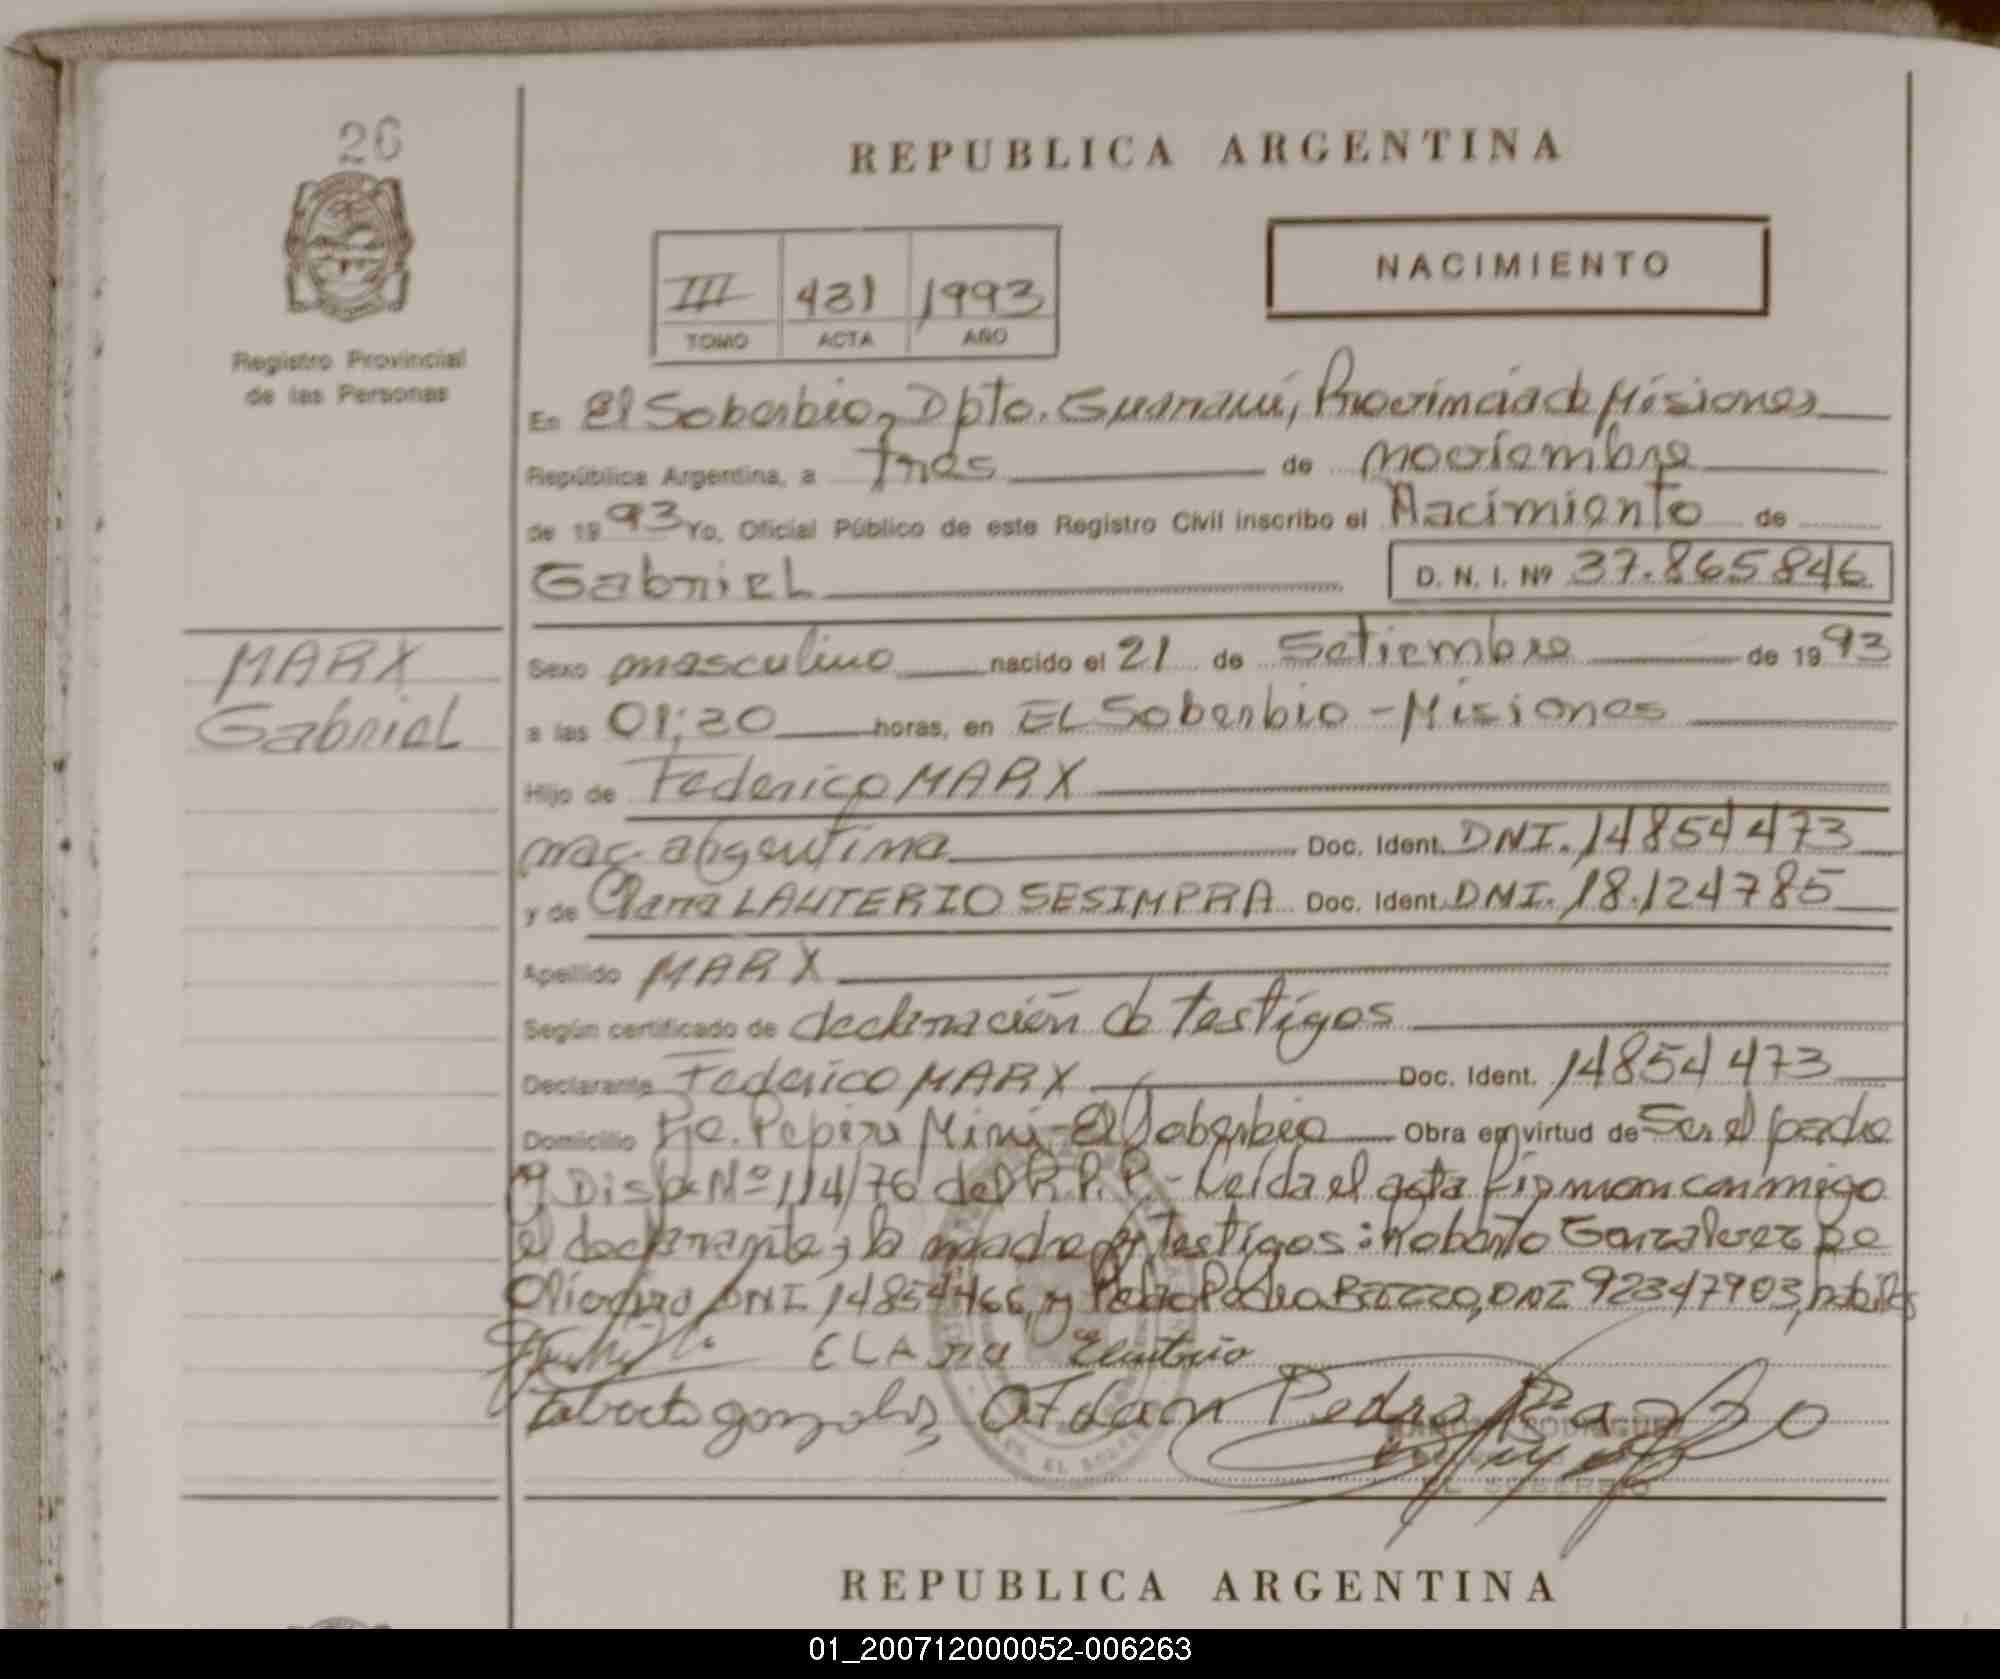 26
REPUBLICA ARGENTINA
NACIMIENTO
III 431 1993
TOMO ACTA AÑO
Registro Provincial
de las Personas
En El Soberbio, Dpto. Guaraní, Provincia de Misiones
República Argentina, a tres de noviembre
de 1993 Yo, Oficial Público de este Registro Civil inscribo el Nacimiento de
Gabriel D. N. I. Nº 37.865846
MARX
Gabriel
Sexo masculino nacido el 21 de Setiembre de 1993
a las 01:30 horas, en EL Soberbio - Misiones
Hijo de Federico MARX
nac. argentina Doc. Ident. DNI. 14854473
y de Clara LAUTERIO SESIMPRA Doc. Ident. DNI. 18.124785
Apellido MARX
Según certificado de declaración de testigos
Declarante Federico MARX Doc. Ident. 14854473
Domicilio Pje. Pepiri Mini - El Soberbio Obra en virtud de Ser el padre
y Disp. Nº 114/76 del R.P.P. - Leída el acta firman conmigo
el declarante, la madre y testigos: Roberto Gonzalvez De
DNI 14854466, y Pedro DNI 92347903, habiles
CLARA Leuterio
Pedro
EL SOBERBIO
REPUBLICA ARGENTINA
01_200712000052-006263